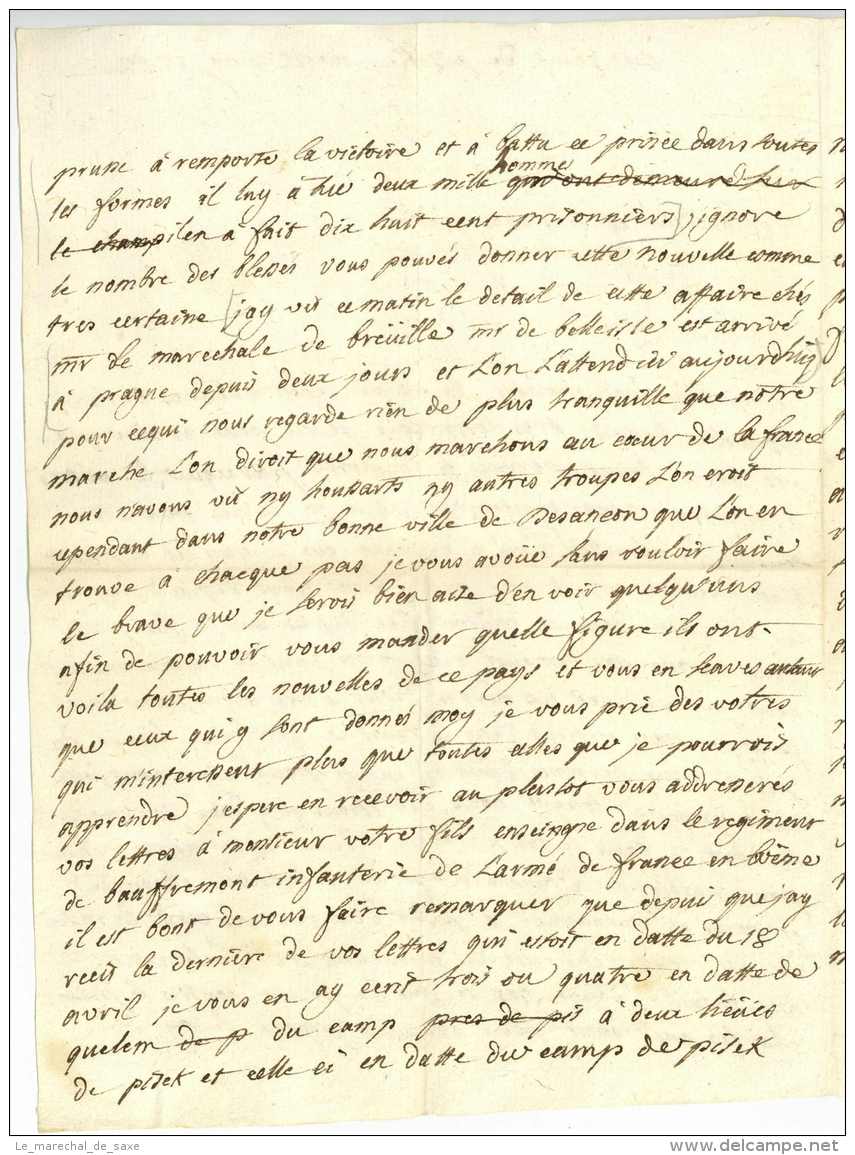 prusse à remporte la victoire et à battu ce prince dans toutes
les formes il luy à tué deux mille homme qui ont demeuré sur
le champ ilen à fait dix huit cent prisonniers j'ignore
le nombre des blessés vous pouvés donner cette nouvelle comme
tres certaine jay vû ce matin le detail de cette affaire chés
mr le marechale de breüille mr de belleisle est arrivé
à prague depuis deux jours et l'on l'attend ici aujourdhuy
pour cequi nous regarde rien de plus tranquille que notre
marche l'on diroit que nous marchons au cœur de la france
nous navons vû ny houssarts ny autres troupes l'on croit
cependant dans notre bonne ville de Besancon que l'on en
trouve à chacque pas je vous avoüe sans vouloir faire
le brave que je serois bien aise d'en voir quelqu'uns
afin de pouvoir vous mander quelle figure ils ont
voila toutes les nouvelles de ce pays et vous en scaves autant
que ceux qui y sont donnés moy je vous prie des votres
qui m'interessent plus que toutes celles que je pourrois
apprendre j'espere en recevoir au plustot vous addresserés
vos lettres à monsieur votre fils enseingne dans le regiment
de bauffremont infanterie de l'armé de france en boëme
il est bont de vous faire remarquer que depuis que jay
recû la derniere de vos lettres qui estoit en datte du 18
avril je vous en ay ecrit trois ou quatre en datte de
quelem de p du camp pres de pis à deux liëües
de pisek et celle ci en datte du camp de pisek
Le_marechal_de_saxe
www.delcampe.net